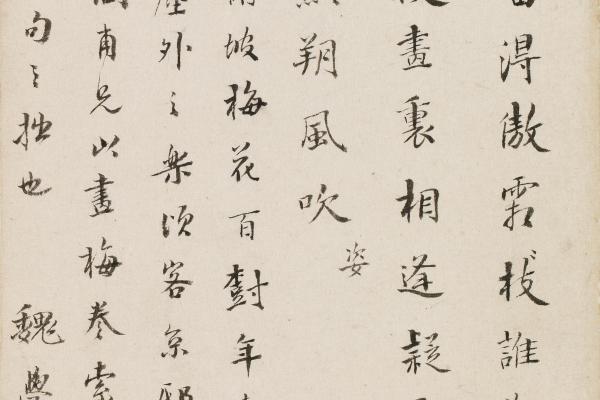 得傲霜枝誰
畫裏相逢疑
朔風吹
姿
坡梅花百樹年
外之樂頃客京邸
甫兄以畫梅卷索
句之拙也
魏